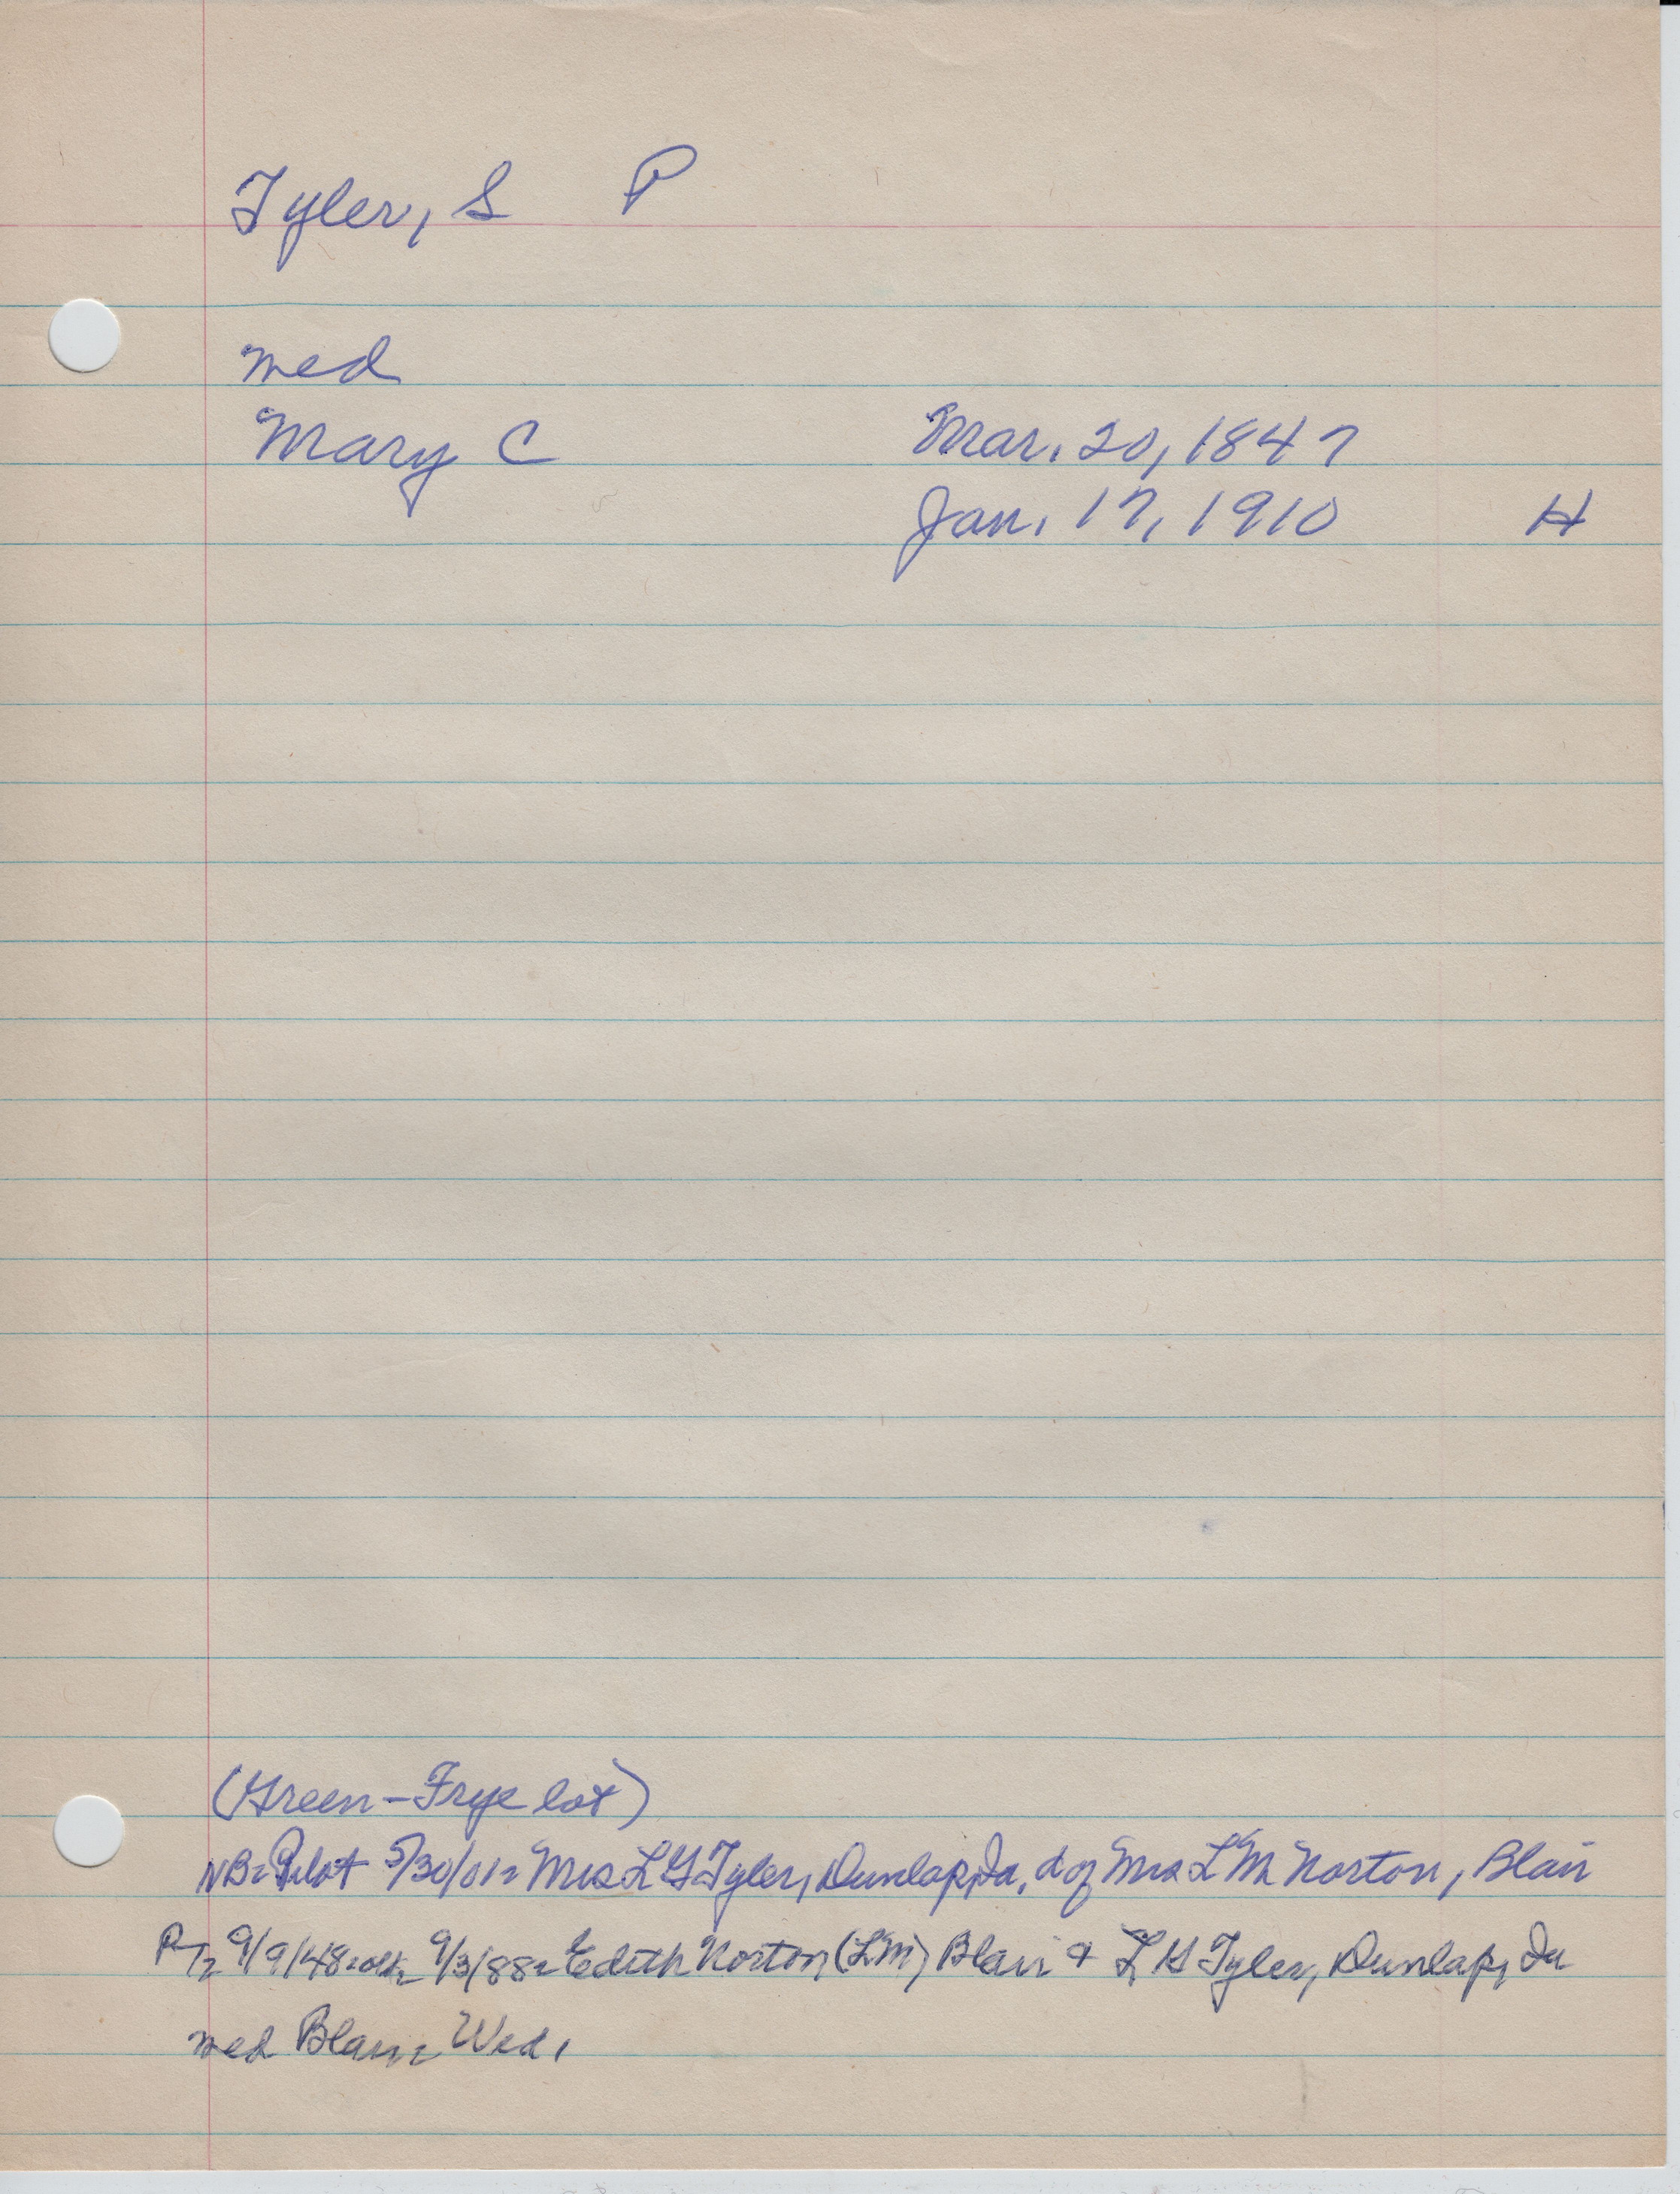 Tyler, S P
wed
Mary C Mar. 20, 1847
Jan. 17, 1910 H
(Green-Frye lot)
NB: Pilot 5/30/01: Mrs L G Tyler, Dunlap, Ia, d of Mrs L M Norton, Blair
9/9/48: 9/3/88: Edith Norton, (LM) Blair & L G Tyler, Dunlap, Ia
wed Blair: Wed.